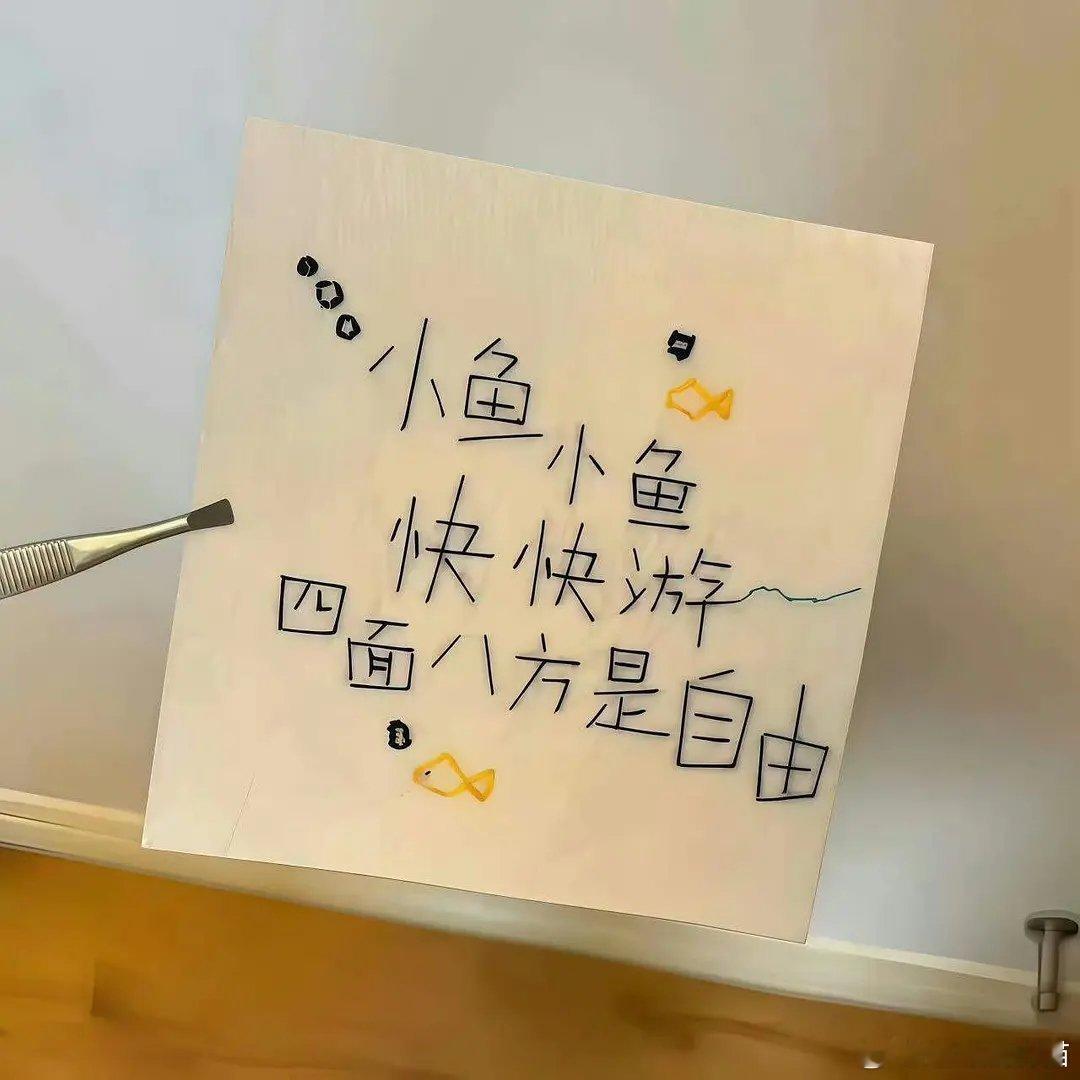 小鱼小鱼
快快游
四面八方是自由